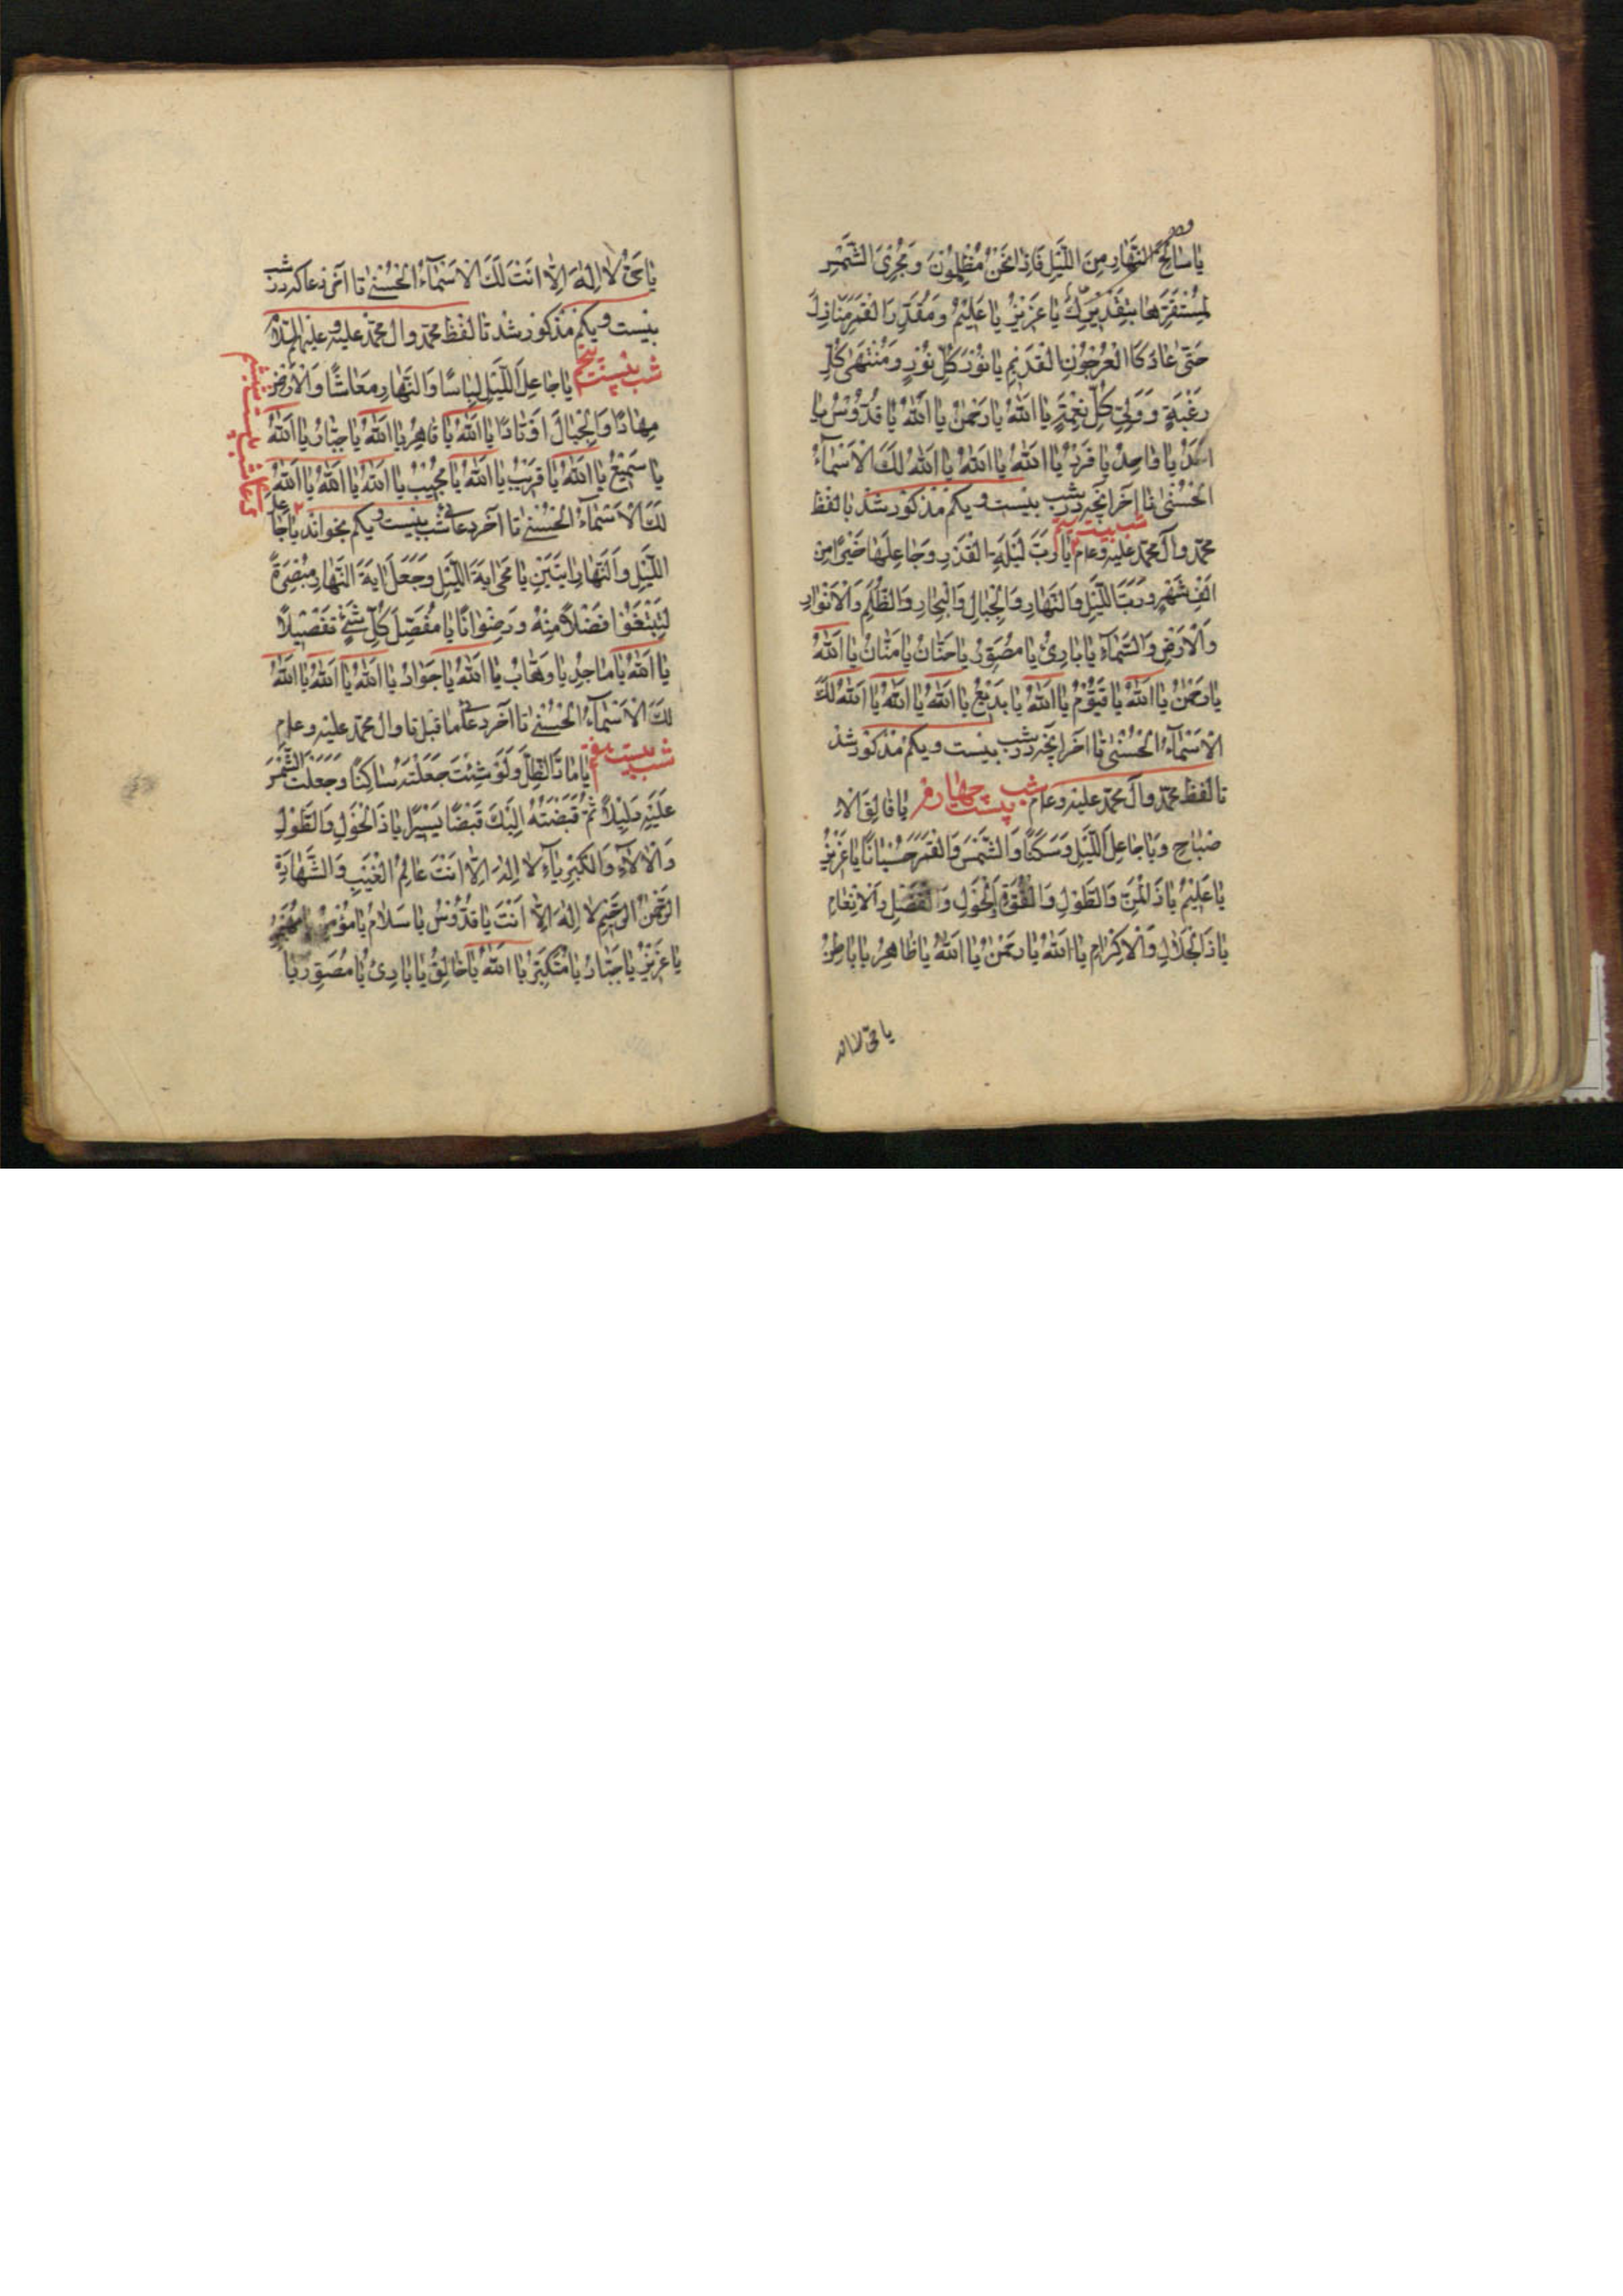 یا سالخ النهار من اللیل فاذا نحن مظلمون و مجری الشمس
لمستقرها بتقدیرک یا عزیز یا علیم و مقدر القمر منازل
حتی عاد کالعرجون القدیم یا نور کل نور و منتهی کل
رغبة و ولی کل نعمة یا الله یا رحمن یا الله یا قدوس یا
احد یا واحد یا فرد یا الله یا الله یا الله لک الاسماء
الحسنی تا آخر آنچه در شب بیست و یکم مذکور شد تا لفظ
محمد وال محمد علیه و علیهم شب بیست سیم یا رب لیلة القدر و جاعلها خیرا من
الف شهر و رب اللیل والنهار والجبال والبحار والظلم والانوار
والارض والسماء یا بارئ یا مصور یا حنان یا منان یا الله
یا رحمن یا الله یا قیوم یا الله یا بدیع یا الله یا الله یا الله لک
الاسماء الحسنی تا آخر آنچه در شب بیست و یکم مذکور شد
تا لفظ محمد وال محمد علیه و علیهم شب بیست چهارم یا فالق الا
صباح و یا جاعل اللیل و سکنا والشمس والقمر حسبانا یا عزیز
یا علیم یا ذالمن والطول والقوة والحول والفضل والانعام
یا ذالجلال والاکرام یا الله یا رحمن یا الله یا ظاهر یا باطن
یا حی لا اله
یا حی لا اله الا انت لک الاسماء الحسنی تا آخر دعا که در شب
بیست و یکم مذکور شد تا لفظ محمد وال محمد علیه و علیهم السلام
شب بیست پنجم یا جاعل اللیل لباسا والنهار معاشا والارض
مهادا والجبال اوتادا یا الله یا قاهر یا الله یا جبار یا الله
یا سمیع یا الله یا قریب یا الله یا مجیب یا الله یا الله یا الله
لک الاسماء الحسنی تا آخر دعای شب بیست و یکم بخواند یا جاعل
دعای شب بیست ششم
اللیل والنهار ایتین یا محی ایة اللیل و جعل ایة النهار مبصرة
لتبتغوا فضلا منه و رضوانا یا مفصل کل شئ تفصیلا
یا الله یا ماجد یا وهاب یا الله یا جواد یا الله یا الله یا الله
لک الاسماء الحسنی تا آخر دعای ما قبل تا وال محمد علیه و علیهم
شب بیست هفتم یا ماد الظل ولو شئت جعلته ساکنا و جعلت الشمس
علیه دلیلا ثم قبضته الیک قبضا یسیرا یا ذالحول والطول
والالاء والکبریاء لا اله الا انت عالم الغیب والشهادة
الرحمن الرحیم لا اله الا انت یا قدوس یا سلام یا مؤمن یا مهیمن
یا عزیز یا جبار یا متکبر یا الله یا خالق یا بارئ یا مصور یا